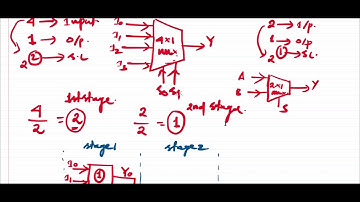 4 → 1 input
1 → o/p
2 ② → S.L
I0
I1
I2
I3
4x1
mux
Y
S0 S1
2 → i/p.
1 → o/p.
2 ① → S.L
A
B
2x1
mux
Y
S
1st stage.
4/2 = ②
2nd stage.
2/2 = ①
stage 1
stage 2
I0
I1
①
Y0